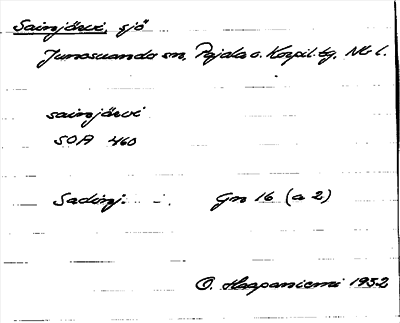 Sainjärvi, sjö
Junosuando sn, Pajala o. Korpil. tg, Nb l.
sainjärvi
SOA 460
Sadinj. Gn 16 (a 2)
O. Haapaniemi 1952